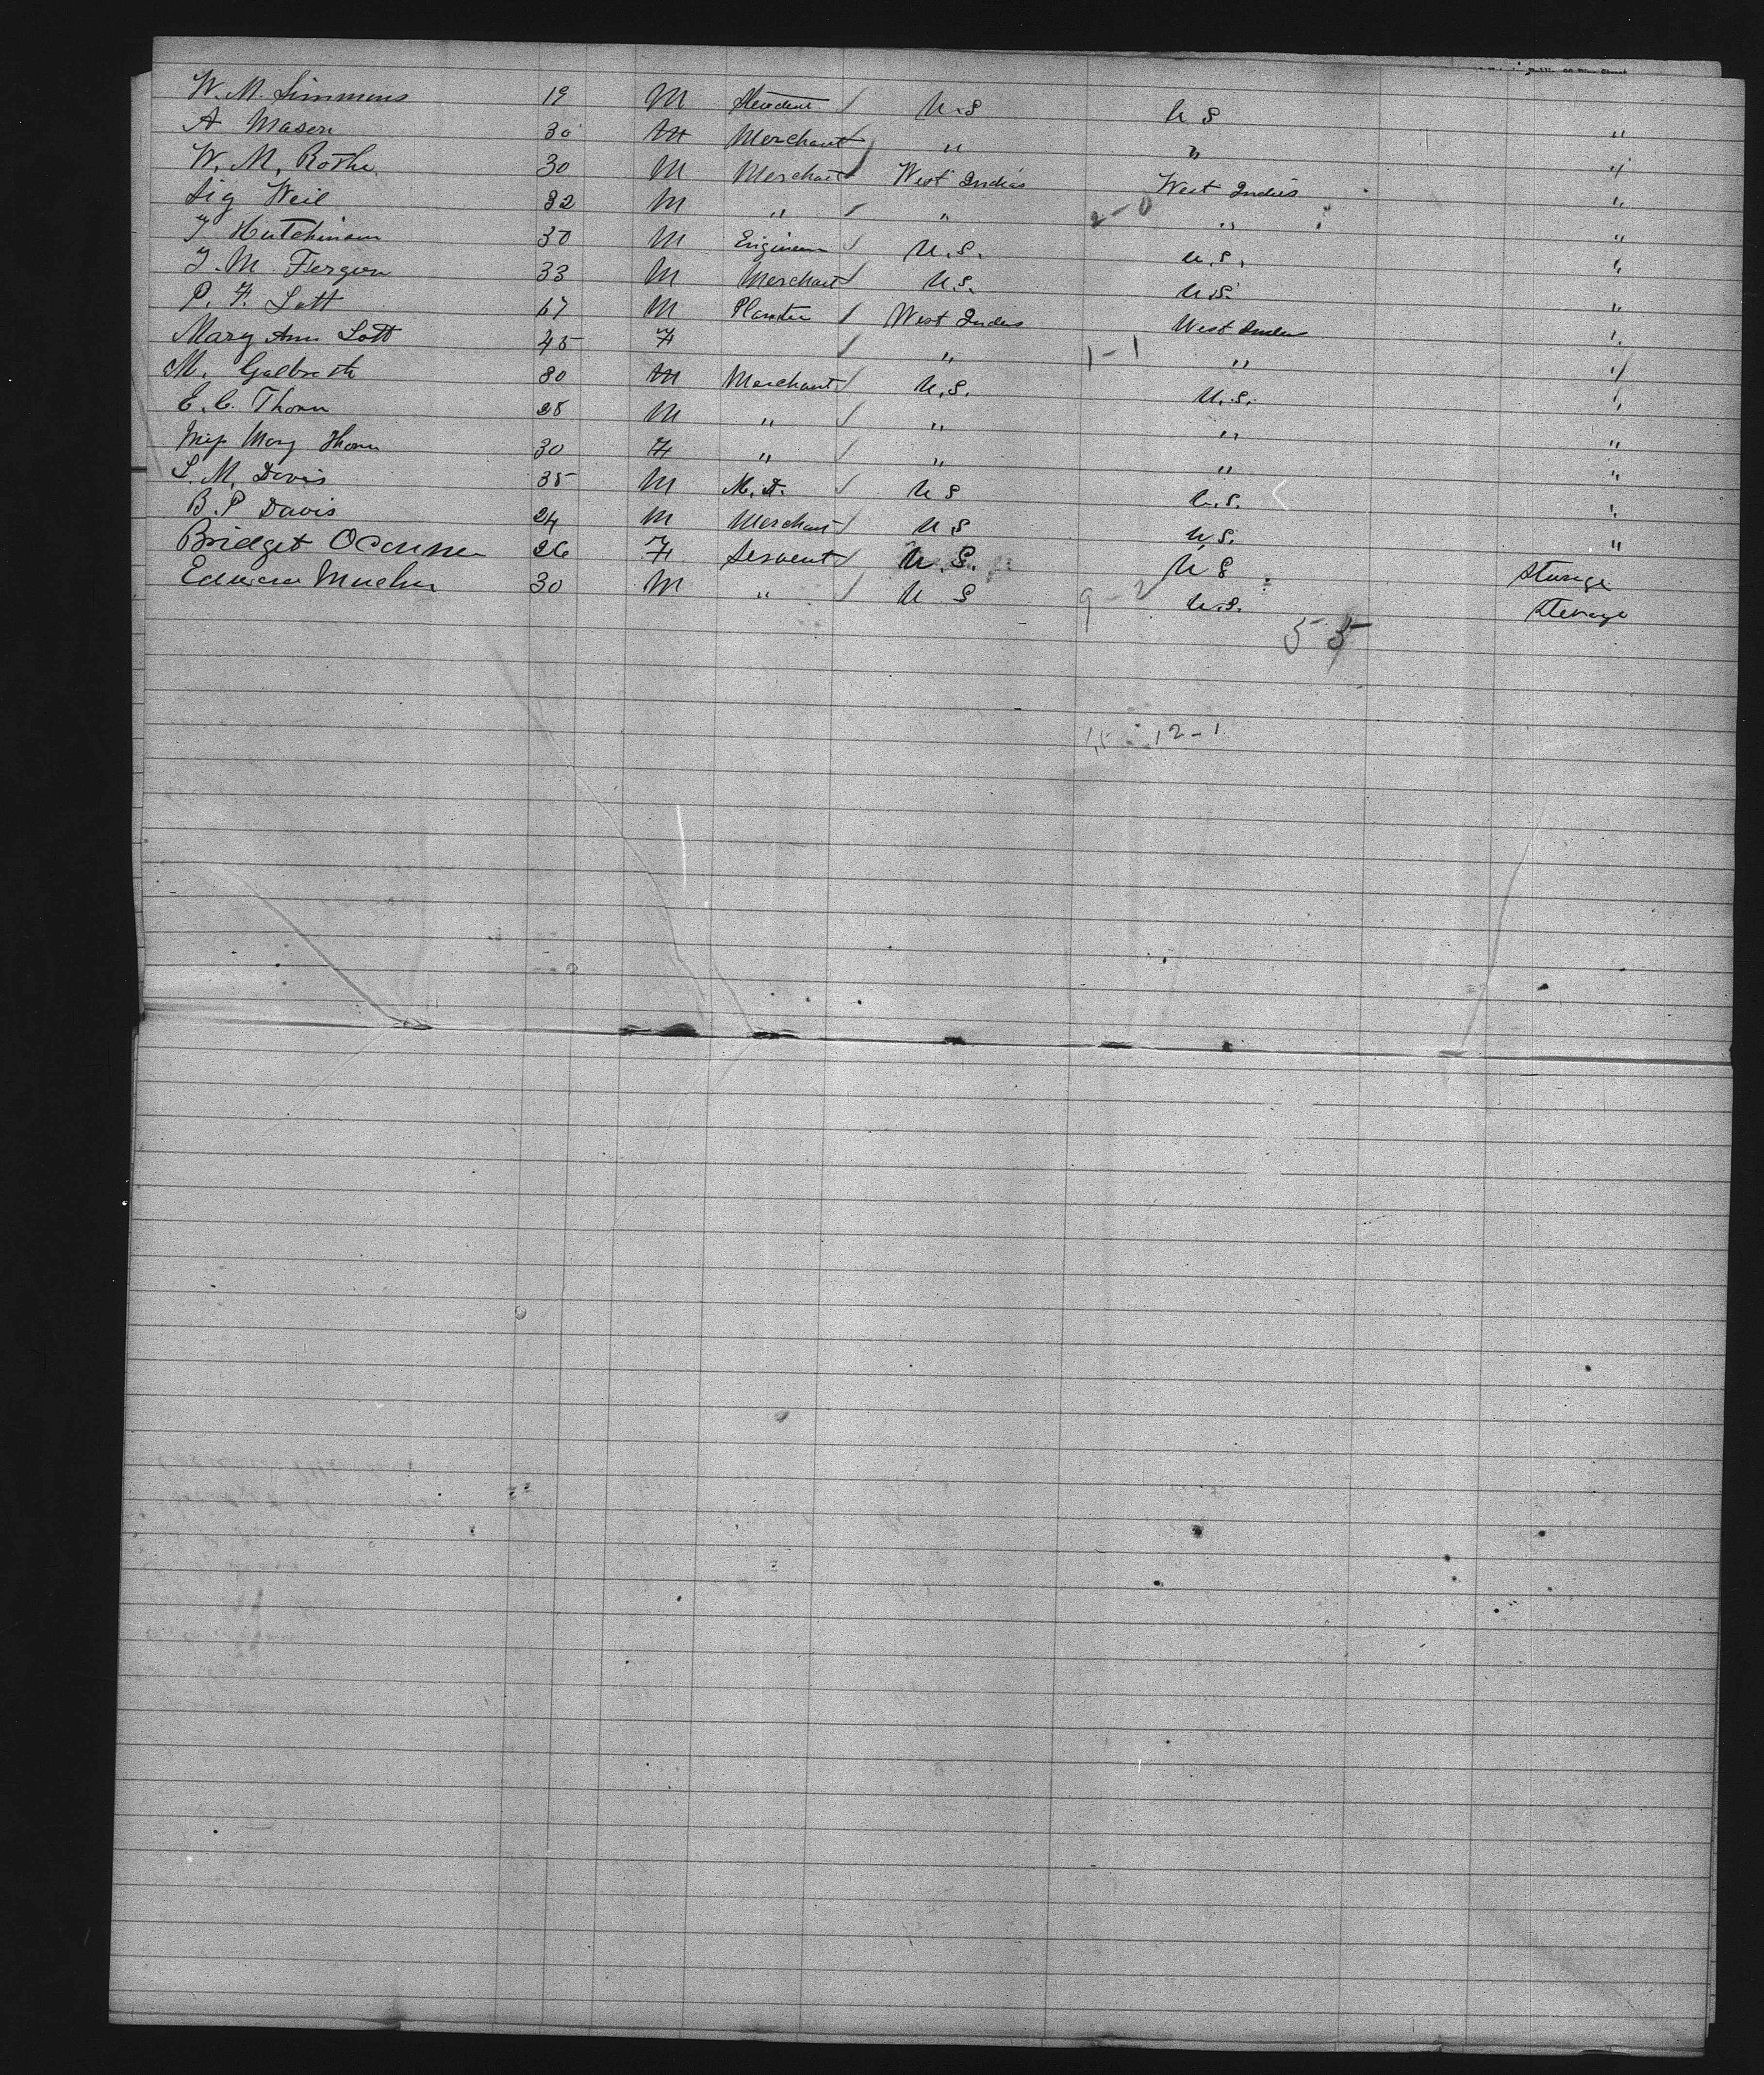 W. M. Simmons 19 M Student / U.S U S "
A Mason 30 M Merchant / " " "
W. M. Rothe 30 M Merchant / West Indias West Indies "
Sig Weil 32 M " / " 2-0 " "
T Hutchinson 30 M Engineer / U.S. U.S. "
J. M. Ferguson 33 M Merchant / U.S. U.S. "
P. F. Lott 67 M Planter / West Indies West Indies "
Mary Ann Lott 45 F / " 1-1 " "
M. Galbraith 30 M Merchant / U.S. U.S. "
E. C. Thorn 28 M " / " " "
Miss Mary Thorn 30 F " / " " "
L. M. Davis 35 M M.D. / U S U.S. "
B. P Davis 24 M Merchant / U S U.S. "
Bridget Oconner 26 F Servent / U.S. U S Sturage
Edward 30 M " / U S 9-2 U.S. Sterage
55
12-1